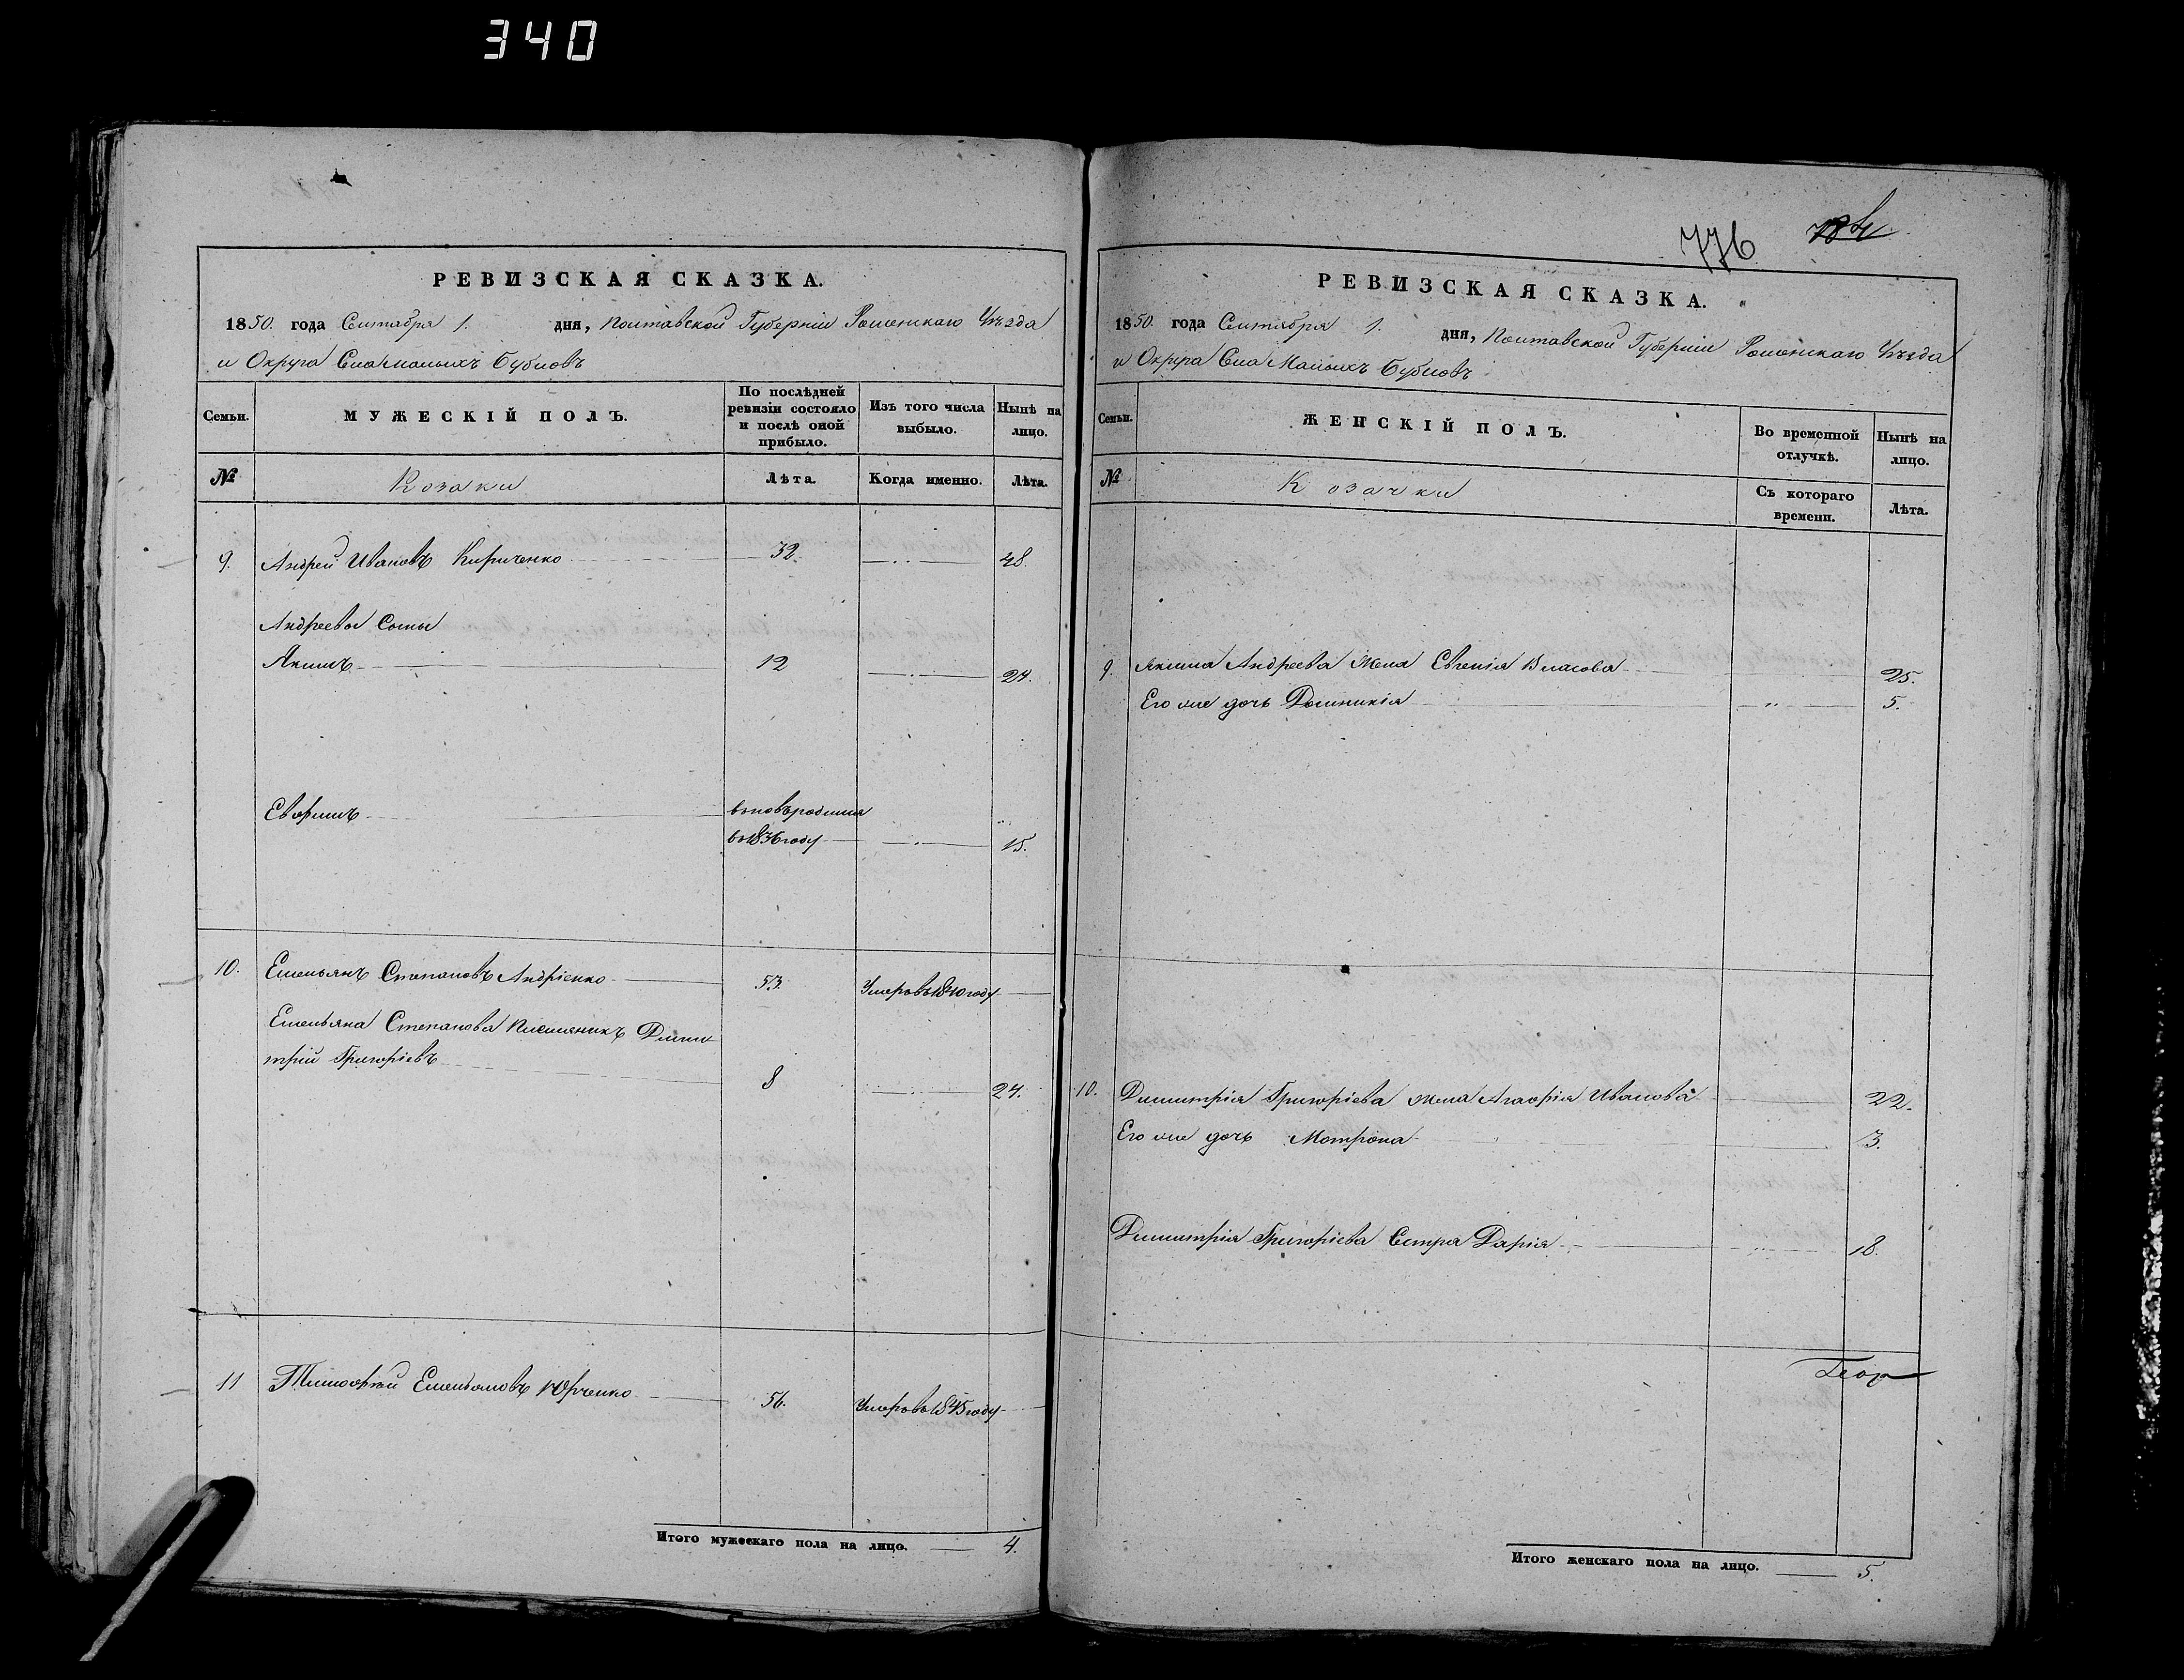 340
776 784
РЕВИЗСКАЯ СКАЗКА.
1850. года Сентября 1. дня, Полтавской Губерніи Роменскаго Уѣзда
и Округа Села Малыхъ Бубновъ
Семьи. МУЖЕСКІЙ ПОЛЪ. По послѣдней ревизіи состояло и послѣ оной прибыло. Изъ того числа выбыло. Нынѣ на лицо.
№ Козаки Лѣта. Когда именно. Лѣта.
9. Андрей Ивановъ Кириченко 32. 48.
Андреевы Сыны
Якимъ 12 24.
Евфимъ вновьродился
въ 1836 году 15.
10. Емельянъ Степановъ Андріенко 53. Умеръ въ 1840 году
Емельяна Степанова Племянникъ Дими
трій Григоріевъ 8 24.
11 Тимофей Емельяновъ Юрченко 56. Умеръ въ 1845 году
Итого мужескаго пола на лицо. 4.
РЕВИЗСКАЯ СКАЗКА.
1850. года Сентября 1. дня, Полтавской Губерніи Роменскаго Уѣзда
и Округа Села Малыхъ Бубновъ
Семьи. ЖЕНСКІЙ ПОЛЪ. Во временной отлучкѣ. Нынѣ на лицо.
№ Козачки Съ котораго времени. Лѣта.
9. Якима Андреева жена Евгенія Власова 25.
Его же дочь Домникія 5.
10. Димитрія Григоріева жена Агафія Иванова 22.
Его же дочь Мотрона 3.
Димитрія Григоріева Сестра Дарія 18.
Итого женскаго пола на лицо. 5.